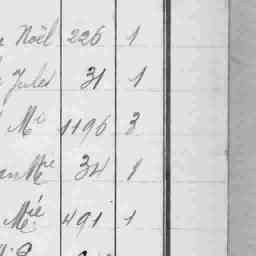 Noël 226 1
Jules 31 1
Me 1196 3
Mre 34 1
Mie 491 1